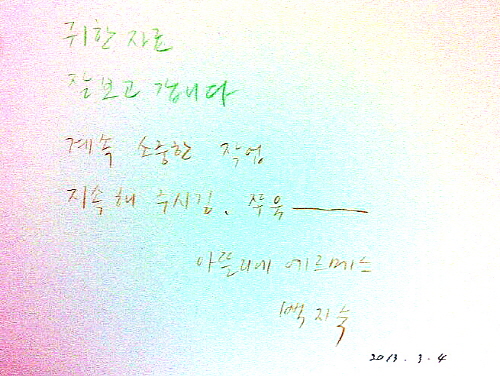 귀한 자료
잘 보고 갑니다
계속 소중한 작업
지속해 주시길.
아뜰리에 에르메스
백지숙
2013. 3. 4